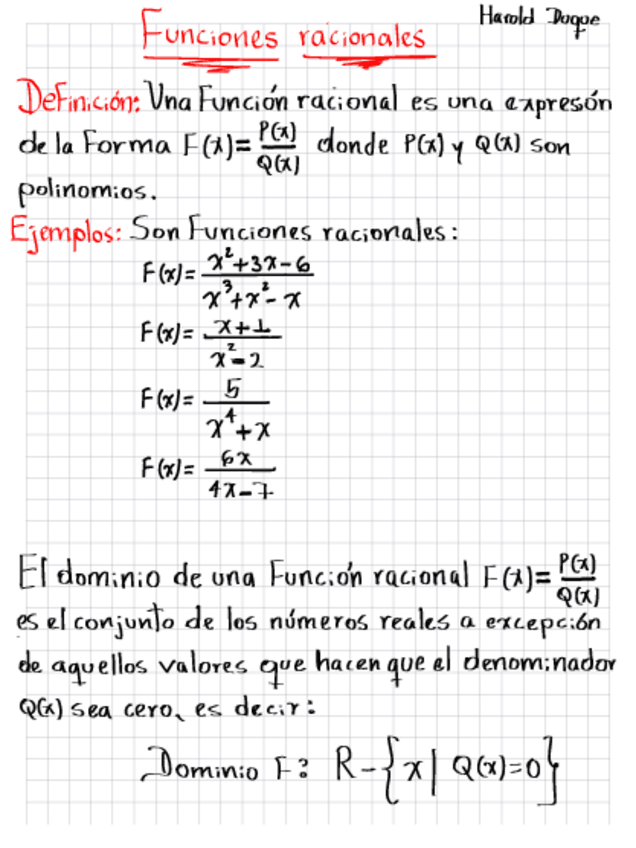 Harold Duque
Funciones racionales
Definición: Una Función racional es una expresión
de la Forma F(x)= P(x)/Q(x) donde P(x) y Q(x) son
polinomios.
Ejemplos: Son Funciones racionales:
F(x)= (x²+3x-6)/(x³+x²-x)
F(x)= (x+1)/(x²-2)
F(x)= 5/(x⁴+x)
F(x)= 6x/(4x-7)
El dominio de una Función racional F(x)= P(x)/Q(x)
es el conjunto de los números reales a excepción
de aquellos valores que hacen que el denominador
Q(x) sea cero, es decir:
Dominio F: R-{x| Q(x)=0}